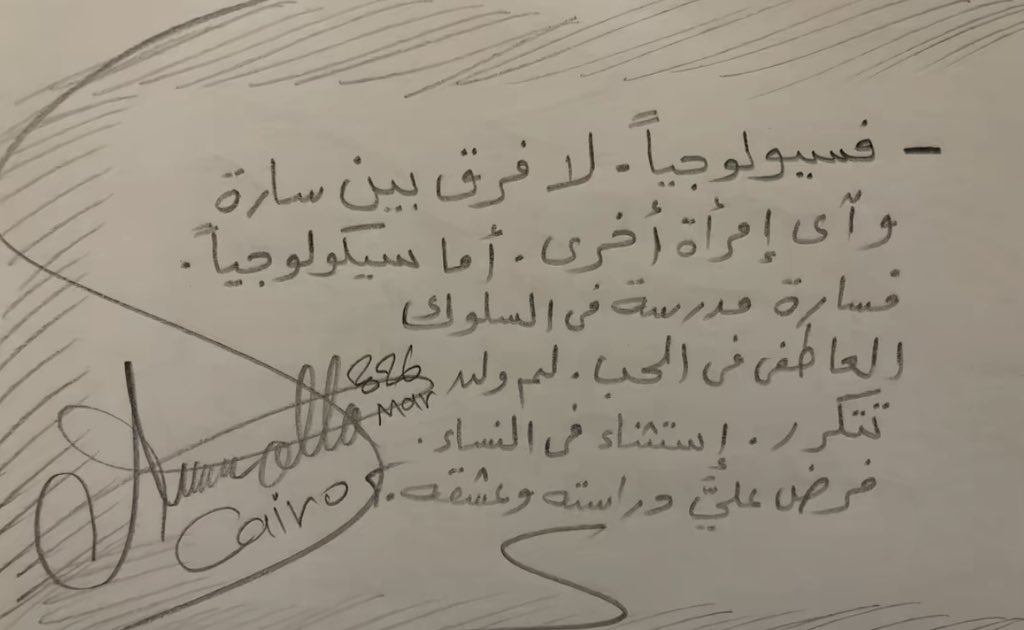 - فسيولوجياً. لا فرق بين سارة
وآى إمرأة أخرى. أما سيكولوجياً.
فسارة مدرسة فى السلوك
العاطفى فى الحب. لم ولن
تتكرر. إستثناء فى النساء.
فرض عليَّ دراسته وعشقه.
Mar
Cairo